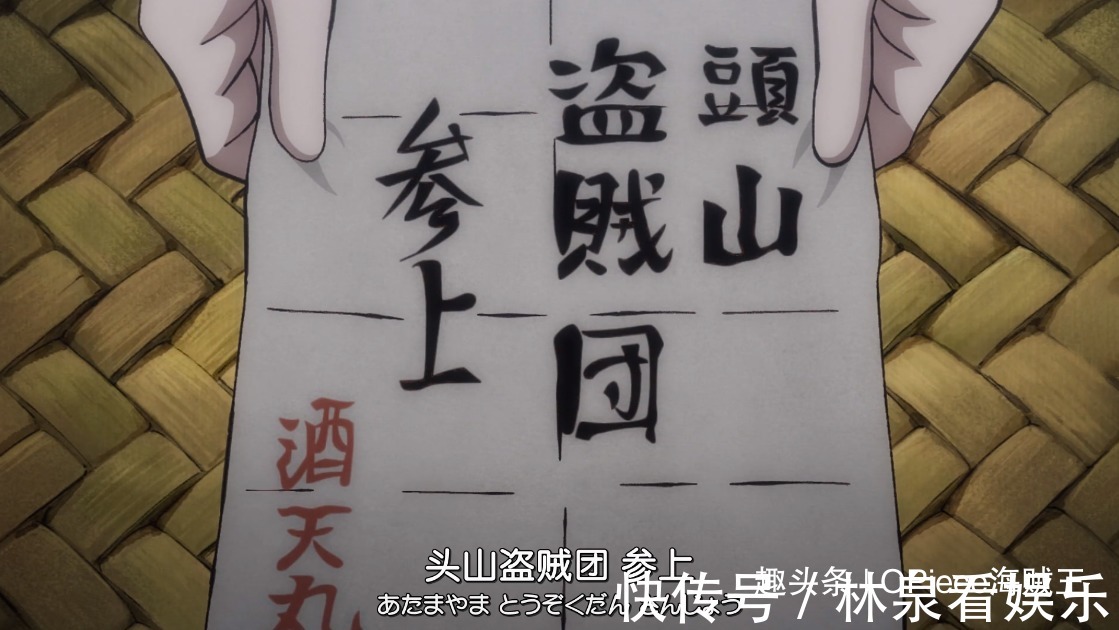 頭山
盗賊団
参上
酒天丸
头山盗贼团 参上
あたまやま とうぞくだん さんじょう
趣头条 / OPiece海贼王
快传号 / 林泉看娱乐